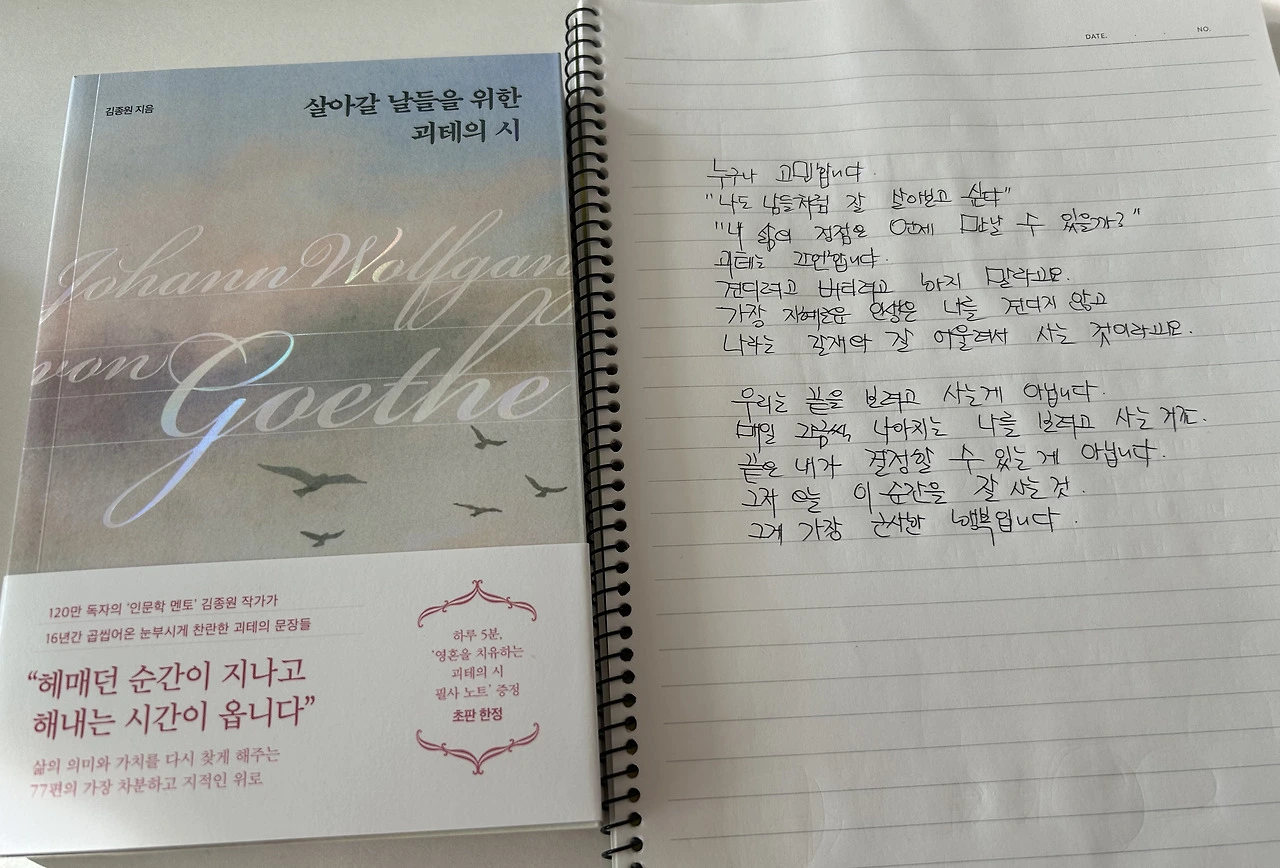 김종원 지음
살아갈 날들을 위한
괴테의 시
Johann Wolfgang
von Goethe
120만 독자의 '인문학 멘토' 김종원 작가가
16년간 곱씹어온 눈부시게 찬란한 괴테의 문장들
“헤매던 순간이 지나고
해내는 시간이 옵니다”
삶의 의미와 가치를 다시 찾게 해주는
77편의 가장 차분하고 지적인 위로
하루 5분,
'영혼을 치유하는
괴테의 시
필사 노트' 증정
초판 한정
DATE. . . NO.
누구나 고민합니다.
"나도 남들처럼 잘 살아보고 싶다"
"내 삶의 정점은 언제 만날 수 있을까?"
괴테는 조언합니다.
견디려고 버티려고 하지 말라고요.
가장 지혜로운 인생은 나를 견디지 않고
나라는 존재와 잘 어울려서 사는 것이라고요.
우리는 끝을 보려고 사는게 아닙니다.
매일 조금씩 나아지는 나를 보려고 사는 거죠.
끝은 내가 결정할 수 있는 게 아닙니다.
그저 오늘 이 순간을 잘 사는 것.
그게 가장 근사한 행복입니다.